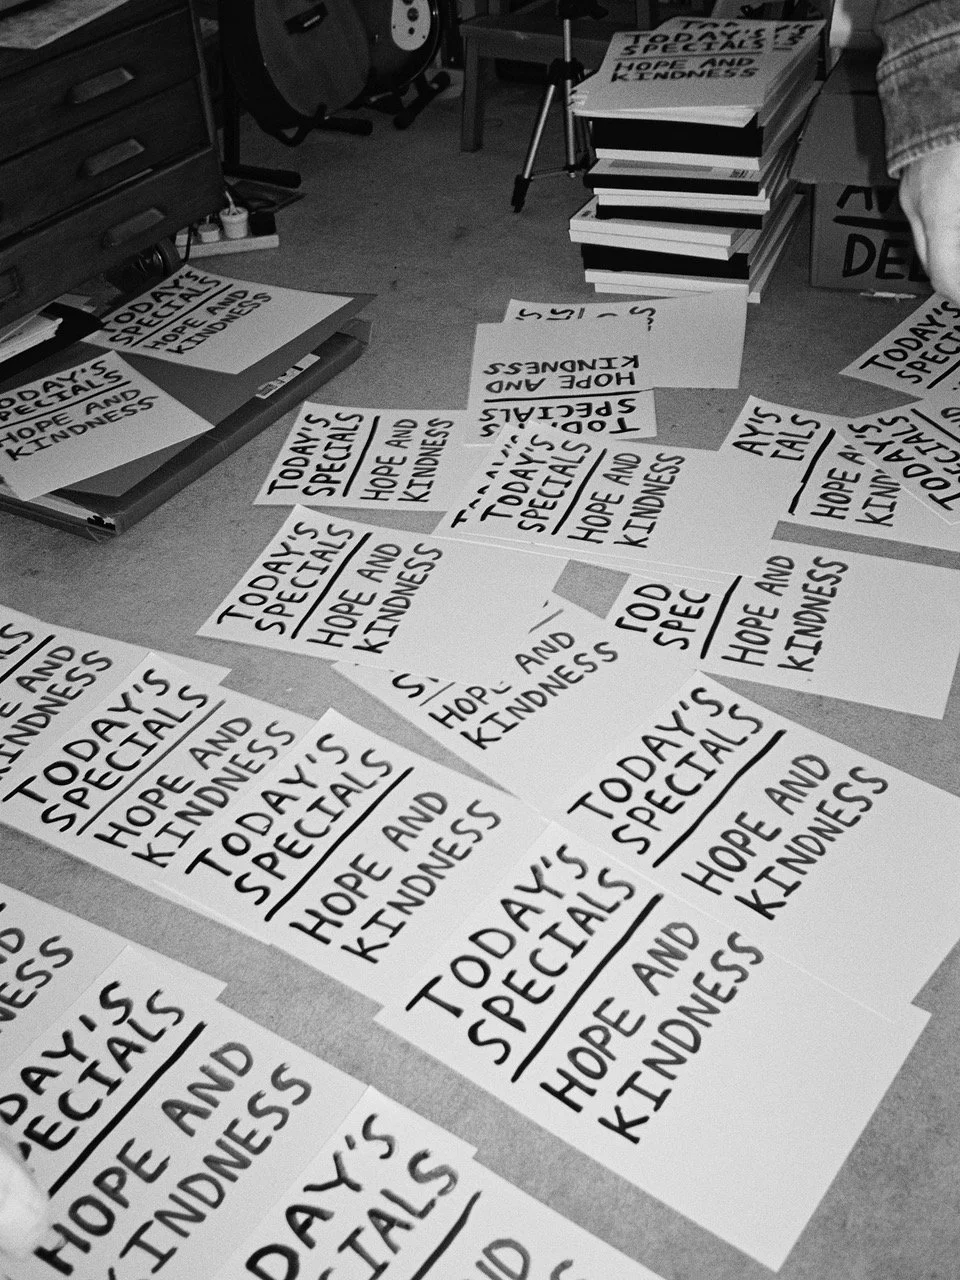 TODAY'S
SPECIALS
HOPE AND
KINDNESS
DEL
TODAY'S
SPECIALS
HOPE AND
KINDNESS
ODAY'S
PECIALS
HOPE AND
KINDNESS
TODAY'S
SPECIALS
HOPE AND
KINDNESS
TODAY'S
SPECIA
TODAY'S
SPECIALS
HOPE AND
KINDNESS
TODAY'S
SPECIALS
HOPE AND
KINDNESS
AY'S
IALS
HOPE A
KINDN
TODAY'S
SPECIALS
HOPE AND
KINDNESS
TOD
SPEC
HOPE AND
KINDNESS
HOPE AND
KINDNESS
ALS
E AND
KINDNESS
TODAY'S
SPECIALS
HOPE AND
KINDNESS
TODAY'S
SPECIALS
HOPE AND
KINDNESS
TODAY'S
SPECIALS
HOPE AND
KINDNESS
TODAY'S
SPECIALS
HOPE AND
KINDNESS
ND
NESS
DAY'S
PECIALS
HOPE AND
KINDNESS
DAY'S
IALS
AND